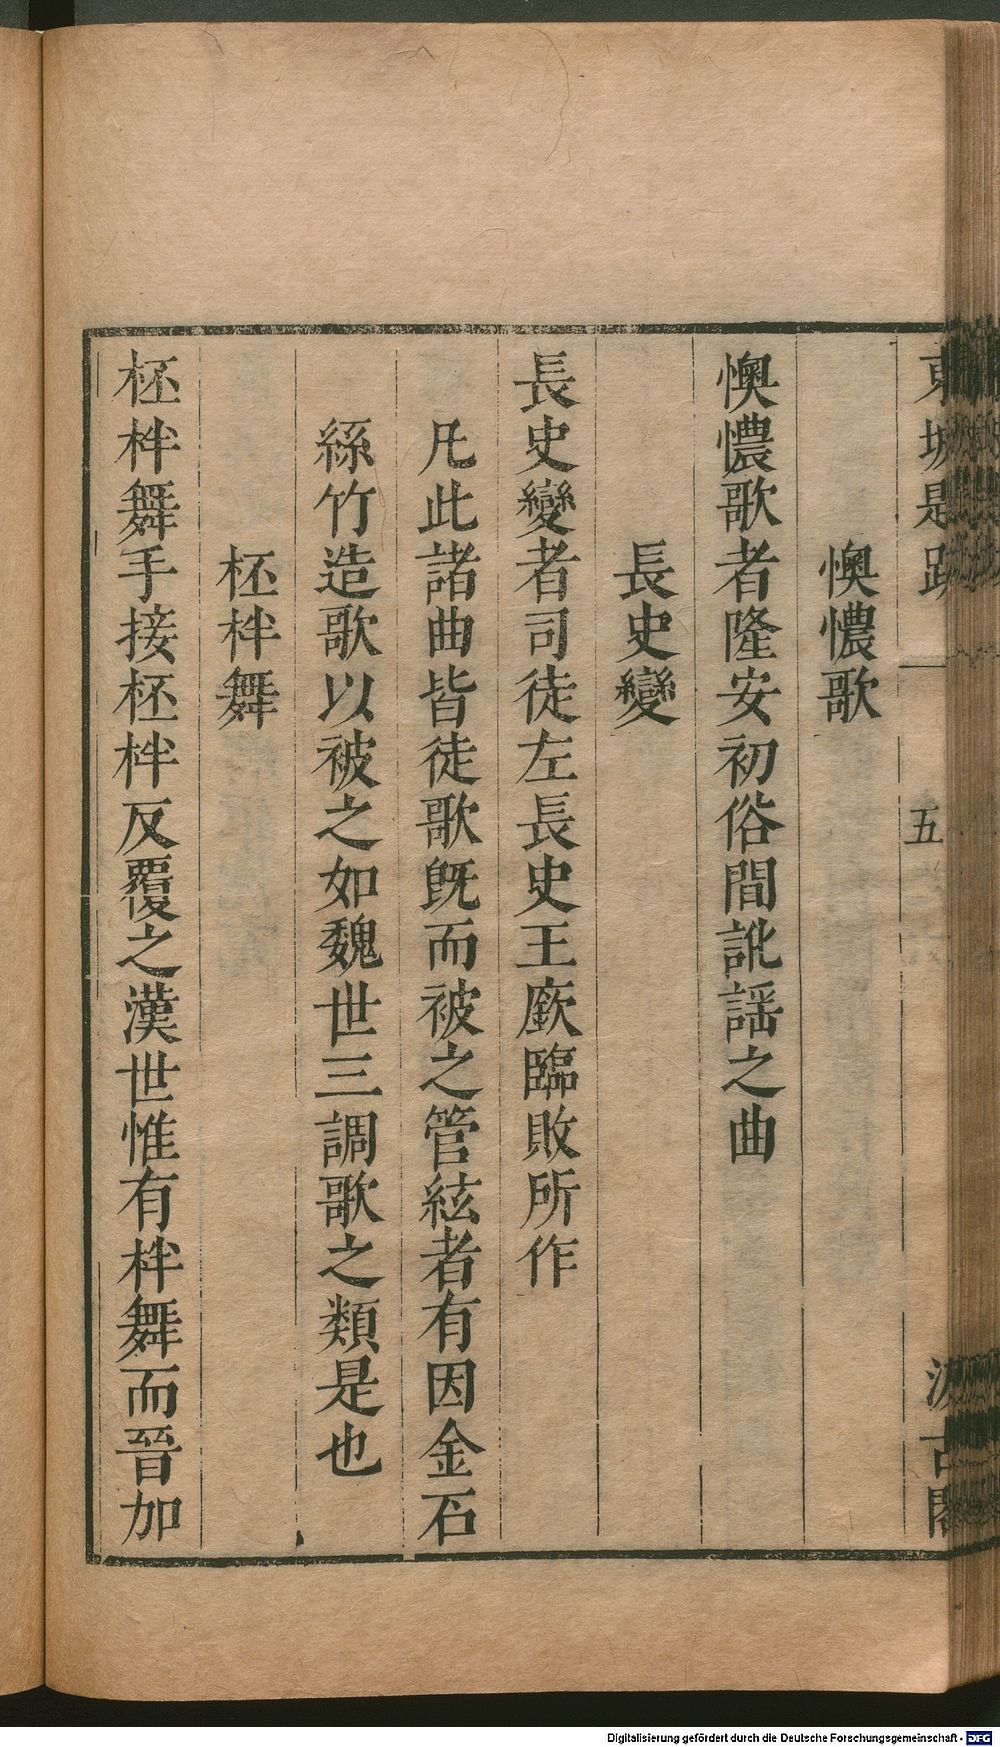 東坡題跋
五
汲古閣
懊憹歌
懊憹歌者隆安初俗間訛謡之曲
長史變
長史變者司徒左長史王廞臨敗所作
凡此諸曲皆徒歌旣而被之管絃者有因金石
絲竹造歌以被之如魏世三調歌之類是也
柸柈舞
柸柈舞手接柸柈反覆之漢世惟有柈舞而晉加
Digitalisierung gefördert durch die Deutsche Forschungsgemeinschaft - DFG